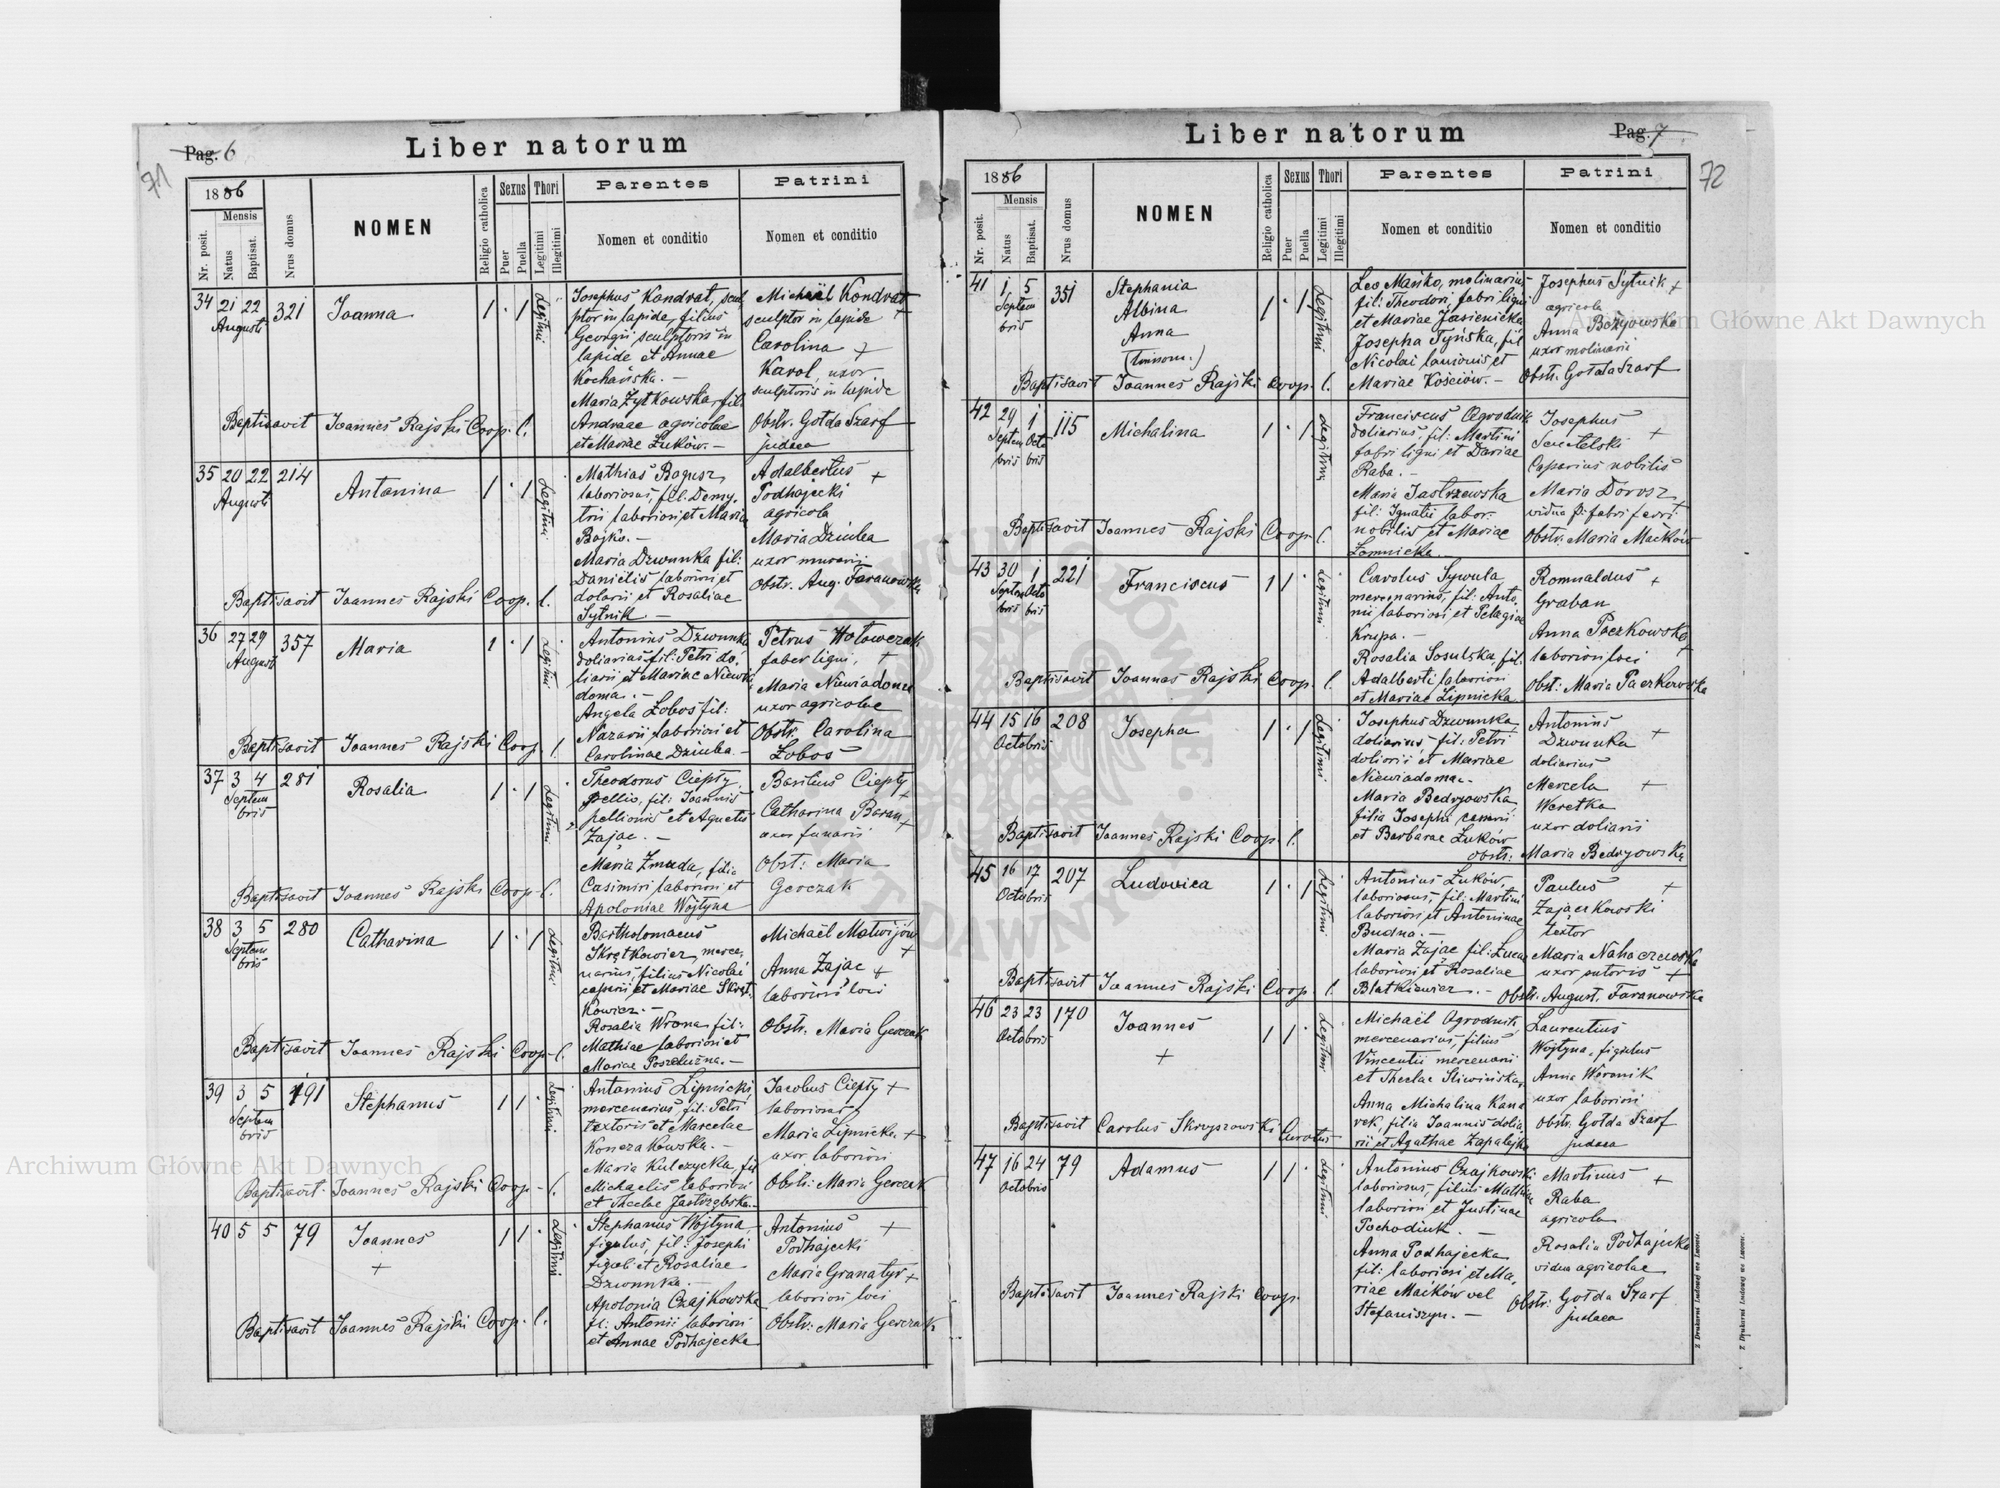 Pag. 6
Liber natorum
71
1886
Mensis
Nr. posit.
Natus
Baptisat.
Nrus domus
NOMEN
Religio catholica
Sexus
Puer
Puella
Thori
Legitimi
Illegitimi
Parentes
Nomen et conditio
Patrini
Nomen et conditio
34 21 22 321 Joanna 1 · 1 Legitimi
Augusti
Josephus Kondrat, scul
ptor in lapide, filius
Georgii sculptoris in
lapide et Annae
Kochańska. —
Maria Żytkowska, fil:
Andreae agricolae
et Mariae Łuków. —
Michaël Kondrat
sculptor in lapide +
Carolina +
Karol, uxor
sculptoris in lapide
Obstr. Gołda Szarf
judaea
Baptisavit Joannes Rajski Coop. l.
35 20 22 214 Antonina 1 · 1 Legitimi
Augusti
Mathias Bogusz,
laboriosus, fil. Demy-
trii laboriosi et Maria
Bojko. —
Maria Dzwonka fil:
Danielis laboriosi et
dolarii et Rosaliae
Sytnik —
Adalbertus +
Podhajecki
agricola
Maria Dziuba
uxor murarii
Obstr. Aug. Faranowska
Baptisavit Joannes Rajski Coop. l.
36 27 29 357 Maria 1 · 1 Legitimi
August
Antonius Dzwonka
doliarius, fil: Petri do-
liarii et Mariae Niewia
doma. —
Angela Łobos fil:
Nazarii laboriosi et
Carolinae Dziuba —
Petrus Hołowczak
faber ligni, +
Maria Niewiadoma
uxor agricolae
Obstr. Carolina
Łobos
Baptisavit Joannes Rajski Coop. l.
37 3 4 281 Rosalia 1 · 1 Legitimi
Septem
bris
Theodorus Ciepły
pellio, fil: Joannis
pellionis et Agnetis
Zając. —
Maria Żmuda, filia
Casimiri laboriosi et
Apoloniae Wojtyna
Basilius Ciepły +
Catharina Baran +
uxor funarii
Obst: Maria
Gerczak
Baptisavit Joannes Rajski Coop. l.
38 3 5 280 Catharina 1 · 1 Legitimi
Septem
bris
Bartholomaeus
Skrętkowicz, merce-
narius, filius Nicolai
caparii et Mariae Skręt-
kowicz. —
Rosalia Wrona fil:
Mathiae laboriosi et
Mariae Poszelużna. —
Michaël Matwijów
+
Anna Zając +
laboriosi loci
Obstr. Maria Gerczak
Baptisavit Joannes Rajski Coop. l.
39 3 5 191 Stephanus 1 1 · Legitimi
Septem
bris
Antonius Lipnicki
mercenarius, fil: Petri
textoris et Marcelae
Konczakowska. —
Maria Kulczycka, fil
Michaelis laboriosi
et Theclae Jastrzębska. —
Jacobus Ciepły +
laboriosus
Maria Lipnicka +
uxor laboriosi
Obstr: Maria Gerczak
Baptisavit Joannes Rajski Coop. l.
40 5 5 79 Joannes 1 1 · Legitimi
+
Stephanus Wojtyna
figulus, fil: Josephi
figuli et Rosaliae
Dzwonka. —
Apolonia Czajkowska
fil: Antonii laboriosi
et Annae Podhajecka
Antonius +
Podhajecki
Maria Granatyr +
laboriosi loci
Obstr: Maria Gerczak
Baptisavit Joannes Rajski Coop. l.
Liber natorum
Pag. 7
72
1886
Mensis
Nr. posit.
Natus
Baptisat.
Nrus domus
NOMEN
Religio catholica
Sexus
Puer
Puella
Thori
Legitimi
Illegitimi
Parentes
Nomen et conditio
Patrini
Nomen et conditio
41 1 5 351 Stephania 1 · 1 Legitimi
Septem
bris
Albina
Anna
Leo Mańko, molinarius
fil: Theodori, fabri ligni
et Mariae Jasienicka
Josepha Tyńska, fil
Nicolai lanionis et
Mariae Kościów. —
Josephus Sytnik +
agricola
Anna Bożyowska
uxor molinarii
Obstr. Gołda Szarf
Baptisavit Joannes Rajski Coop. l.
42 29 1 115 Michalina 1 · 1 Legitimi
Septem Octo
bris bris
Franciscus Ogrodnik
doliarius, fil: Martini
fabri ligni et Dariae
Raba. —
Maria Jastrzewska
fil: Ignatii labor.
nobilis et Mariae
Łomnicka —
Josephus
+
nobilis
Maria Dorosz +
vidua p. fabri ferri
Obstr. Maria Maćków
Baptisavit Joannes Rajski Coop. l.
43 30 1 221 Franciscus 1 1 · Legitimi
Septem Octo
bris bris
Carolus Sywula
mercenarius, fil: Anto-
nii laboriosi et Pelagiae
Krupa. —
Rosalia Sosulska, fil:
Adalberti laboriosi
et Mariae Lipnicka
Romualdus +
Graban
Anna Paczkowska +
laboriosi loci
Obst: Maria Paczkowska
Baptisavit Joannes Rajski Coop. l.
44 15 16 208 Josepha 1 · 1 Legitimi
Octobris
Josephus Dzwonka,
doliarius, fil: Petri
doliarii et Mariae
Niewiadoma. —
Maria Bedryowska
filia Josephi
et Barbarae Łuków
Antonius
Dzwonka +
doliarius
Marcela +
Weretka
uxor doliarii
Obstr: Maria Bedryowska
Baptisavit Joannes Rajski Coop. l.
45 16 17 207 Ludovica 1 · 1 Legitimi
Octobris
Antonius Łuków,
laboriosus, fil: Martini
laboriosi, et Antoninae
Budna. —
Maria Zając fil: Lucae
laboriosi et Rosaliae
Blatkiewicz. —
Paulus +
Zajaczkowski
textor
Maria Nahaczewska
uxor sutoris +
Obstr. August. Faranowska
Baptisavit Joannes Rajski Coop. l.
46 23 23 170 Joannes 1 1 · Legitimi
Octobris
+
Michaël Ogrodnik,
mercenarius, filius
Vincentii mercenarii
et Theclae Śliwińska,
Anna Michalina Kana
rek, filia Joannis dolia-
rii et Agathae Zapalejka
Laurentius
Wojtyna, figulus
Anna Woronik
uxor laboriosi
Obstr. Gołda Szarf
judaea
Baptisavit Carolus Skrzyszowski Curatus
47 16 24 79 Adamus 1 1 · Legitimi
Octobris
Antonius Czajkowski
laboriosus, filius Mathiae
laboriosi et Justinae
Pochodiuk. —
Anna Podhajecka
fil: laboriosi et Ma-
riae Maćków vel
Stefaniszyn. —
Martinus +
Raba
agricola
Rosalia Podhajecka
vidua agricolae
Obstr: Gołda Szarf
judaea
Baptisavit Joannes Rajski Coop.
Z Drukarni Ludowej we Lwowie.
Z Drukarni Ludowej we Lwowie.
Archiwum Główne Akt Dawnych
Archiwum Główne Akt Dawnych
ARCHIWUM GŁÓWNE AKT DAWNYCH